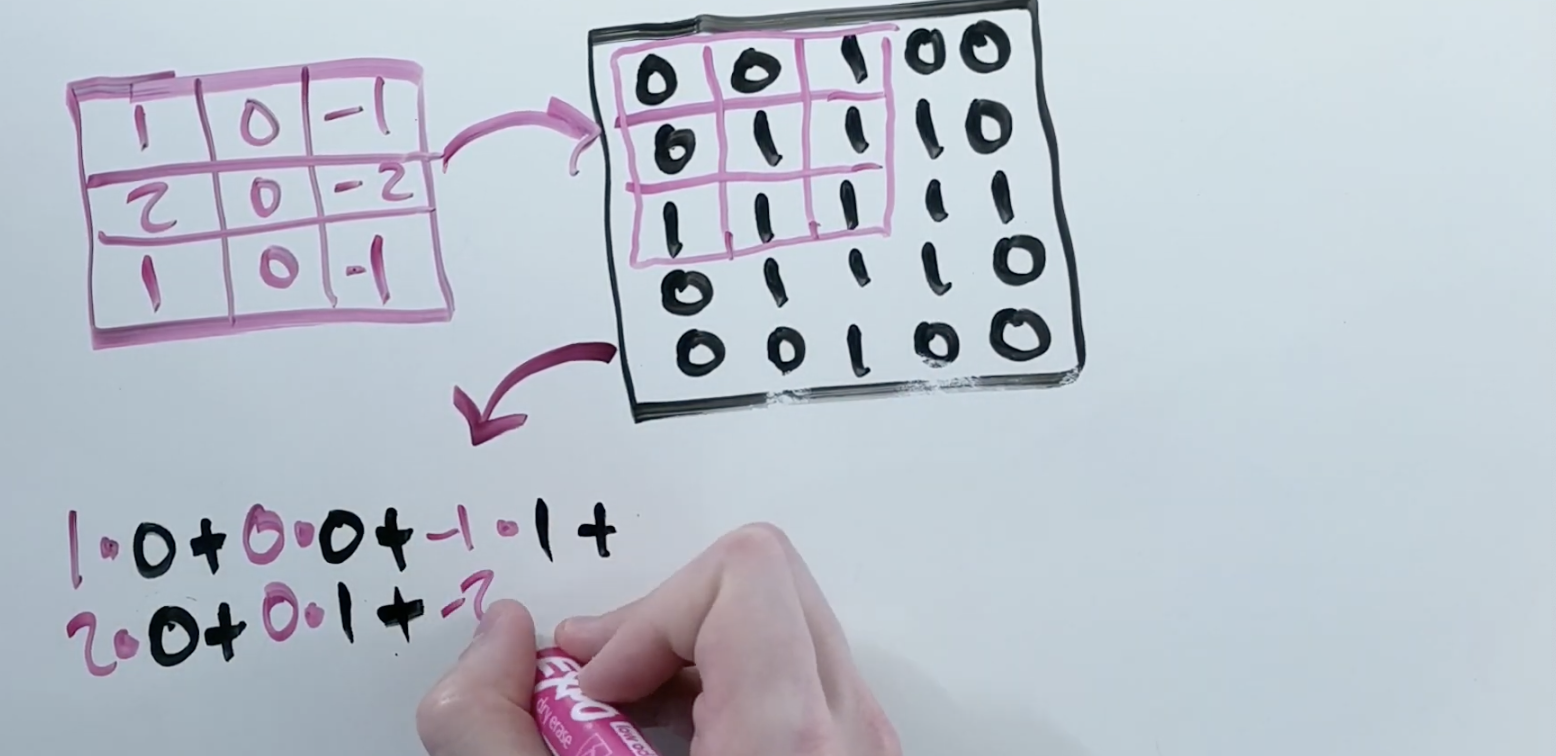 1 0 -1
2 0 -2
1 0 -1
0 0 1 0 0
0 1 1 1 0
1 1 1 1 1
0 1 1 1 0
0 0 1 0 0
1•0+0•0+-1•1+
2•0+0•1+-2
EXPO
dry erase